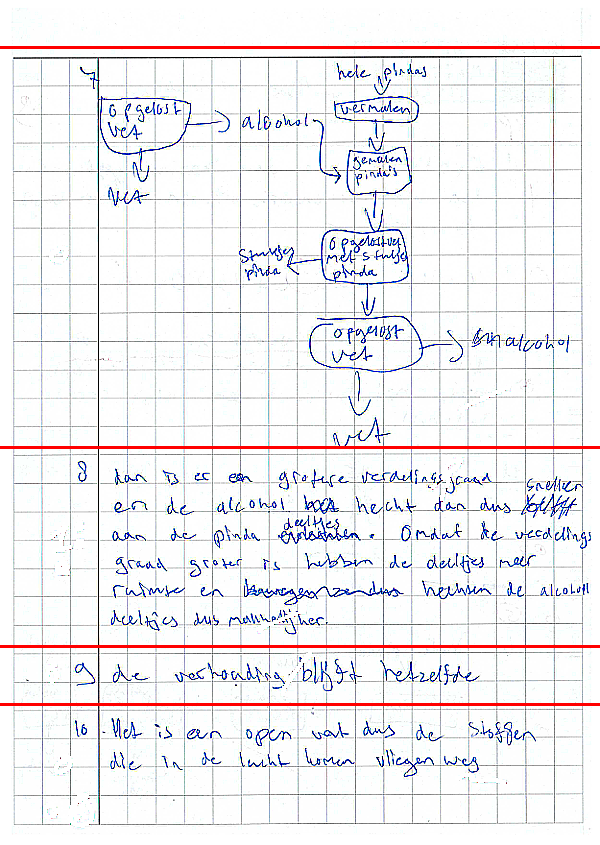 7
hele pindas
opgelost
vet
alcohol
vermalen
vet
gemalen
pinda's
opgelost vet
met stukjes
pinda
stukjes
pinda
opgelost
vet
alcohol
vet
8 dan is er een grotere verdelingsgraad
en de alcohol hecht dan dus sneller
aan de pinda deeltjes. Omdat de verdelings
graad groter is hebben de deeltjes meer
ruimte en hechten de alcohol
deeltjes dus
9 de verhouding blijft hetzelfde
10. Het is een open vat dus de stoffen
die in de lucht komen vliegen weg